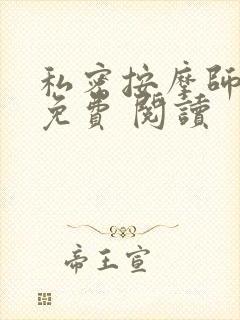 私密按摩師
免費 閱讀
帝王宣